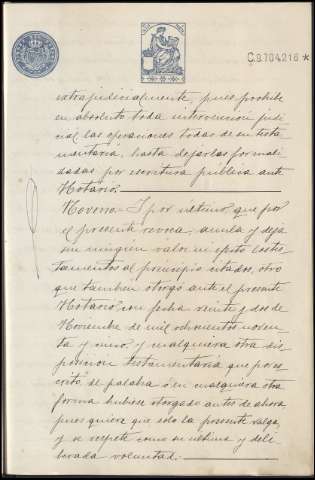 C.9.704.216 *
extrajudicialmente, pues prohibe
en absoluto toda intervencion judi
cial, las operaciones todas de su testa
mentaría, hasta dejarlas formali
zadas por escritura pública ante
Notario.
Noveno.= Y por último, que por
el presente revoca, anula y deja
sin ningún valor ni efecto los tes
tamentos al principio citados, otro
que tambien otorgó ante el presente
Notario con fecha veinte y dos de
Noviembre de mil ochocientos noven
ta y nueve y cualquiera otra dis
posicion testamentaria que por es
crito, de palabra ó en cualquiera otra
forma hubiese otorgado antes de ahora,
pues quiere que solo la presente valga,
y se respete como su última y deli
berada voluntad.